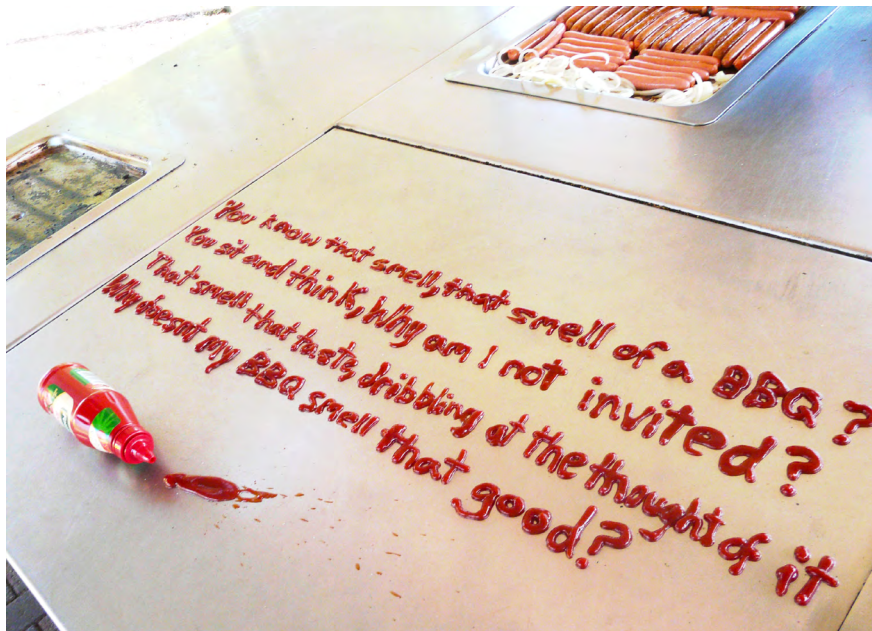 You know that smell, that smell of a BBQ?
You sit and think, Why am I not invited?
That smell that tasts, dribbling at the thought of it
Why doesnt my BBQ smell that good?